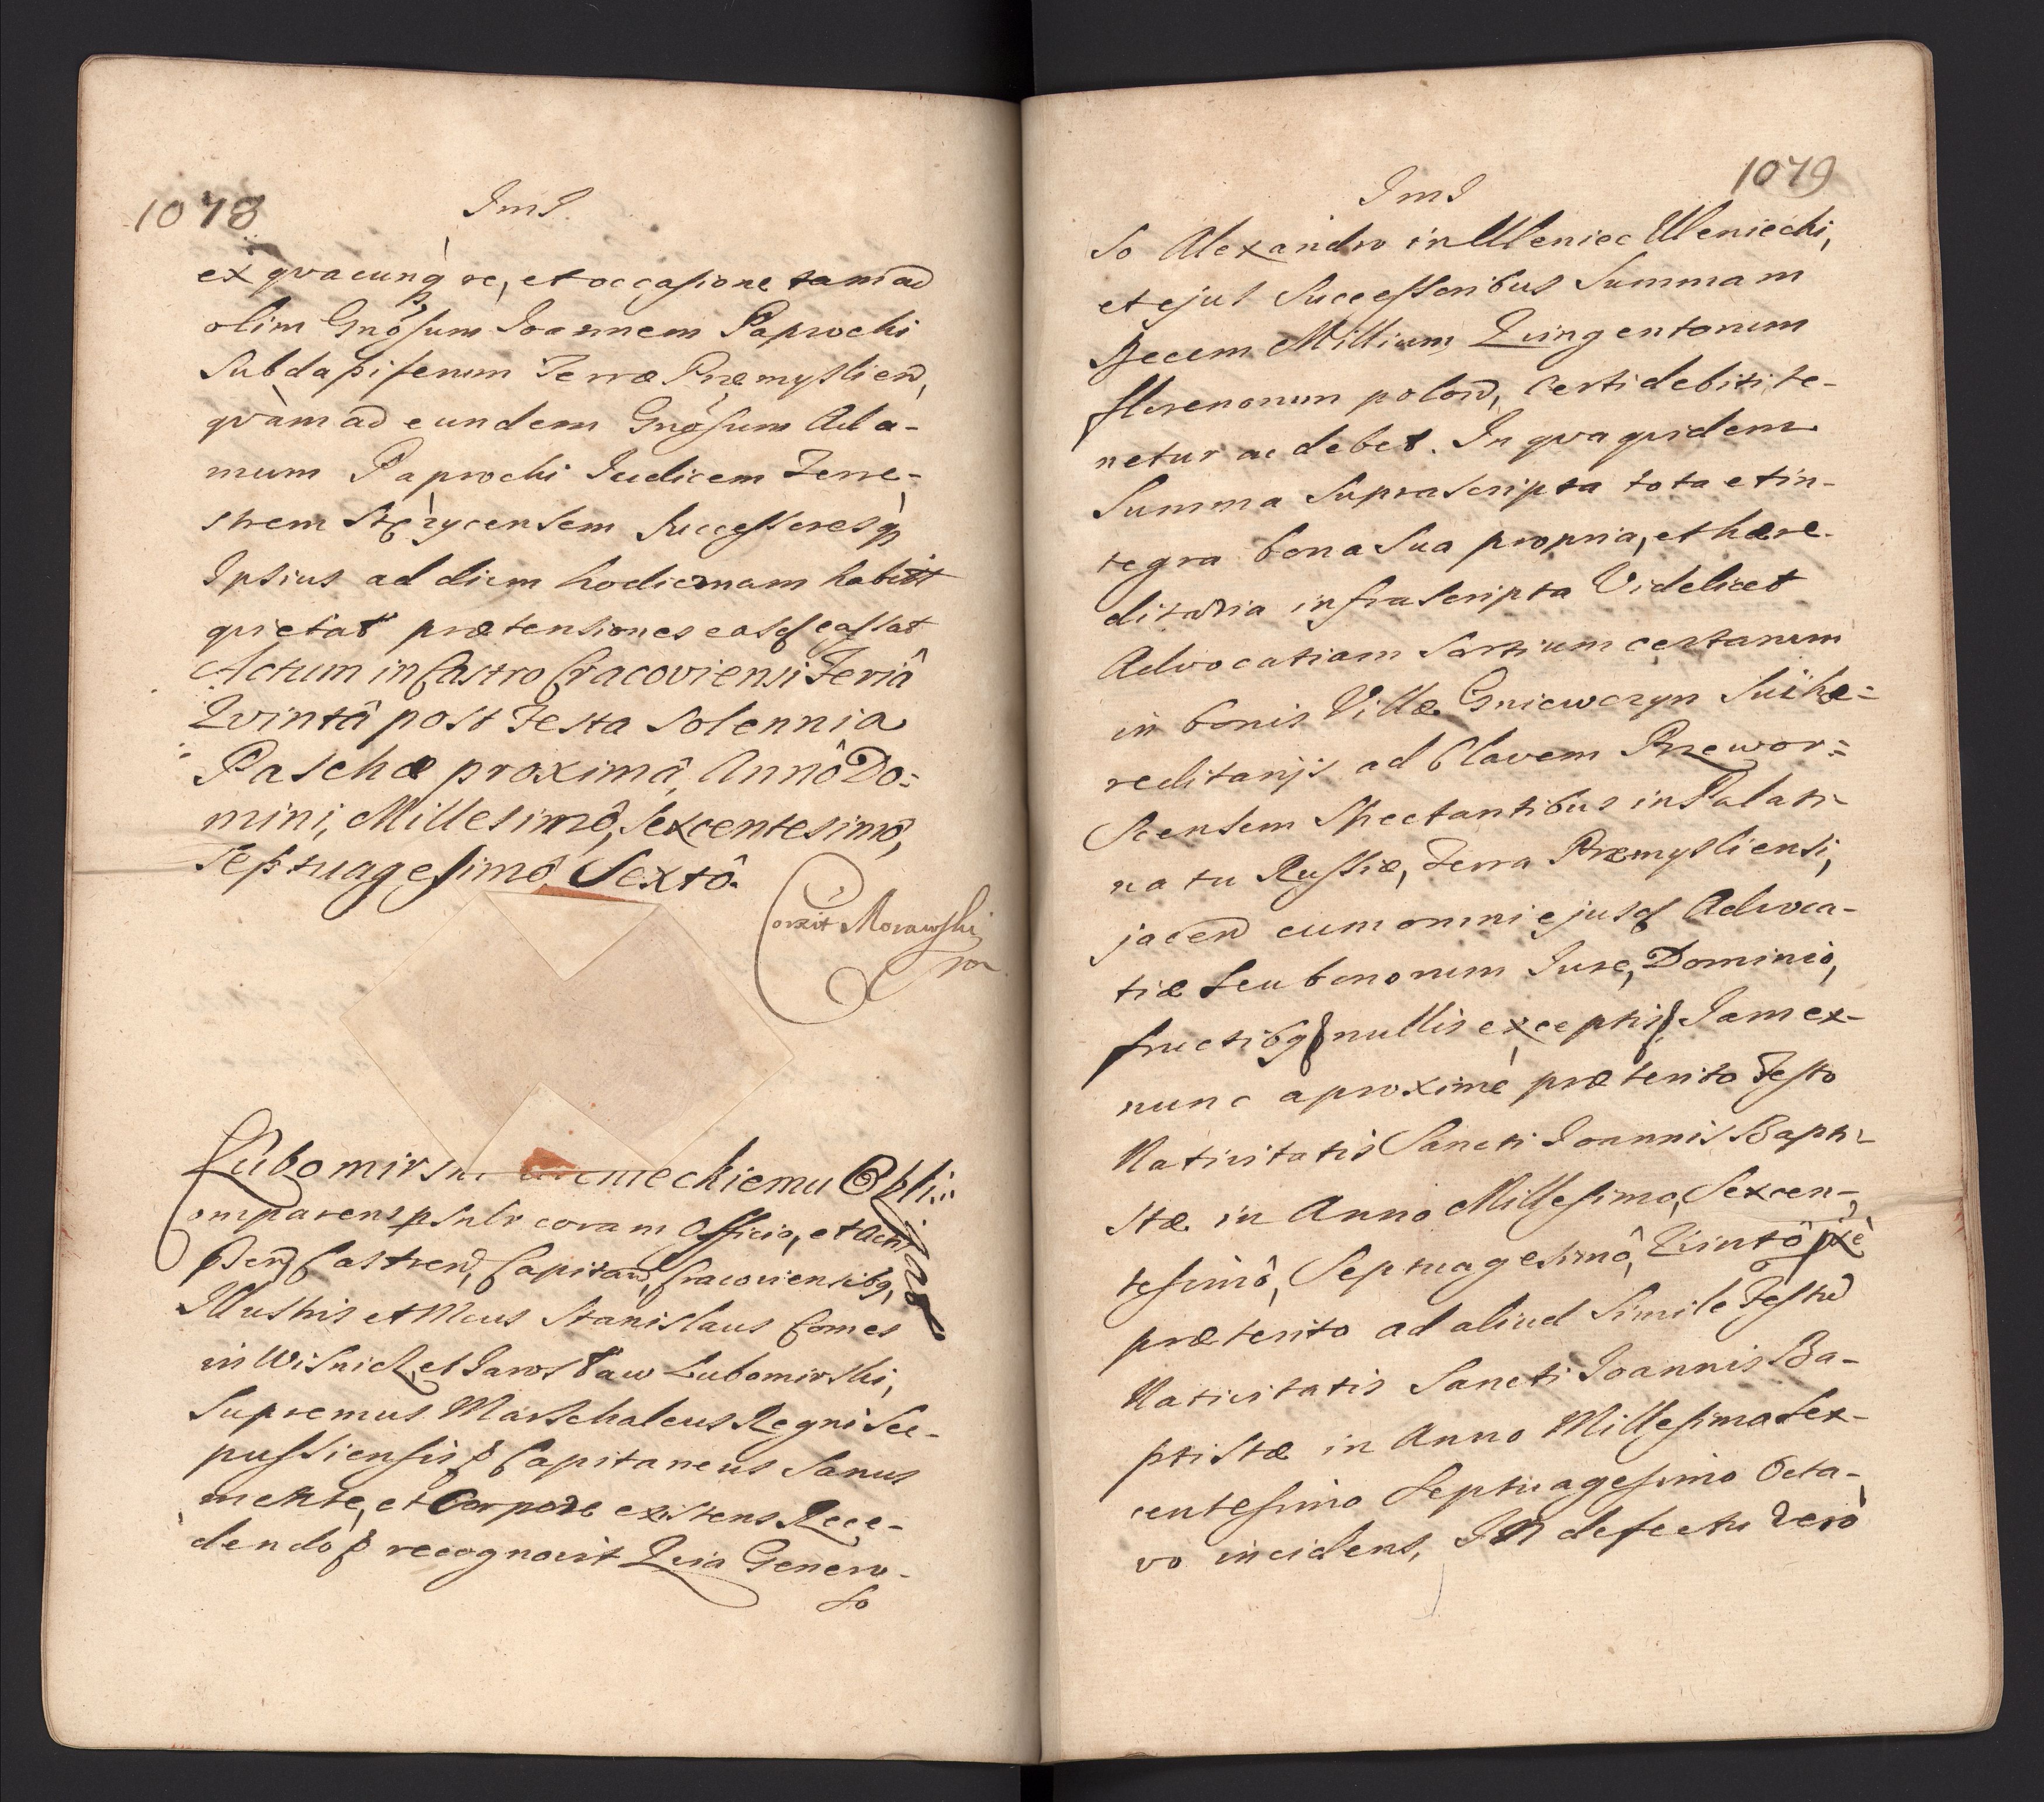 1078
ImJ.
ex qvacunq re, et occasione tam ad
olim Gnosum Joannem Paprocki
Subdapiferum Terræ Præmyslien,
qvàm ad eundem Gnosum Ada-
mum Paprocki Judicem Terre-
strem Stęzycensem Successoresq
Ipsius ad diem hodiernam habuit
quietat prætensiones easq cassat
Actum in Castro Cracoviensi Feriâ
Qvintâ post Festa Solennia
Paschæ proximâ, Annô Do=
mini, Millesimô, Sexcentesimô,
Septuagesimô Sextô.
Corrxit Morawski
Lubomirski Obli=
gat
Comparens psnlr coram Officio, et Actis
Castren, Capitan, Cracoviensibq,
Illustris et Mcus Stanislaus Comes
in Wisnicz et Jarosław Lubomirski,
Supremus Marschalcus Regni Sce-
pussiensis Capitaneus Sanus
mente, et Corpore existens Rece-
dendo recognovit Qvia Genero-
so
1079
ImJ
so Alexandro in Uleniec Uleniecki,
et ejus Successoribus Summam
Decem Millium Quingentorum
florenorum polon, certi debiti te-
netur ac debet. In qva quidem
Summa Suprascripta tota et in-
tegra bona Sua propria, et hære-
ditaria infrascripta Videlicet
Advocatiam Sortium certarum
in bonis Villæ Gniewczyn Sui hæ=
reditarijs ad Clavem Przewor=
scensem Spectantibus in Palati-
natu Russiæ, Terra Præmysliensi,
jacen cum omni ejusd Advoca-
tiæ Seu bonorum Jure, Dominio,
fructibq nullis exceptis Jam ex-
nunc a proximè præterito Festo
Nativitatis Sancti Joannis Bapti-
stæ in Anno Millesimo, Sexcen-
tesimô, Septuagesimô, Qvintô pxè
præterito ad aliud Simile Festu
Nativitatis Sancti Joannis Ba-
ptistæ in Anno Millesimo Sex-
centesimo Septuagesimo Octa-
vo incidens, In defectu vero